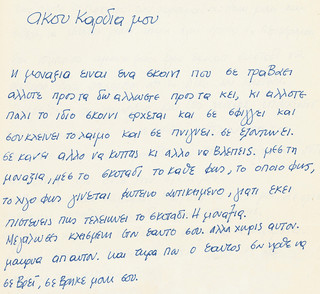 ακου καρδια μου
Η μοναξια ειναι ενα σκοινι που σε τραβαει
αλλοτε προς τα δω αλλωστε προς τα κει, κι αλλοτε
παλι το ιδιο σκοινι ερχεται και σε σφιγγει και
σου κλεινει το λαιμο και σε πνιγει. σε εξοντωνει.
σε κανει αλλο να κυττας κι αλλο να βλεπεις. μες τη
μοναξια, μες το σκοταδι το καθε φως, το οποιο φως,
το λιγο φως γινεται φωτεινο αντικειμενο, γιατι εκει
πιστευεις πως τελειωνει το σκοταδι. Η μοναξια.
Μεγαλωσες κλεισμενη στον εαυτο σου. αλλα χωρις αυτον.
μακρυα απ αυτον. και τωρα που ο εαυτος σου ηρθε να
σε βρει, σε βρηκε μονη σου.